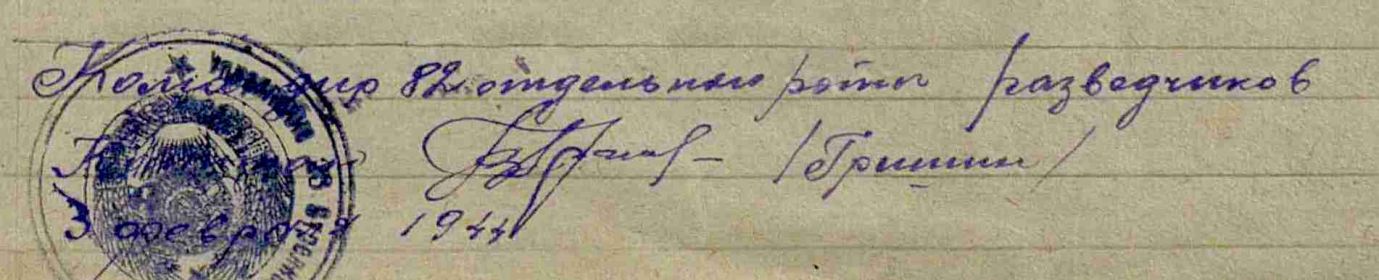 Командир 82 отдельной роты разведчиков
Капитан /Гришин/
3 февраля 1944